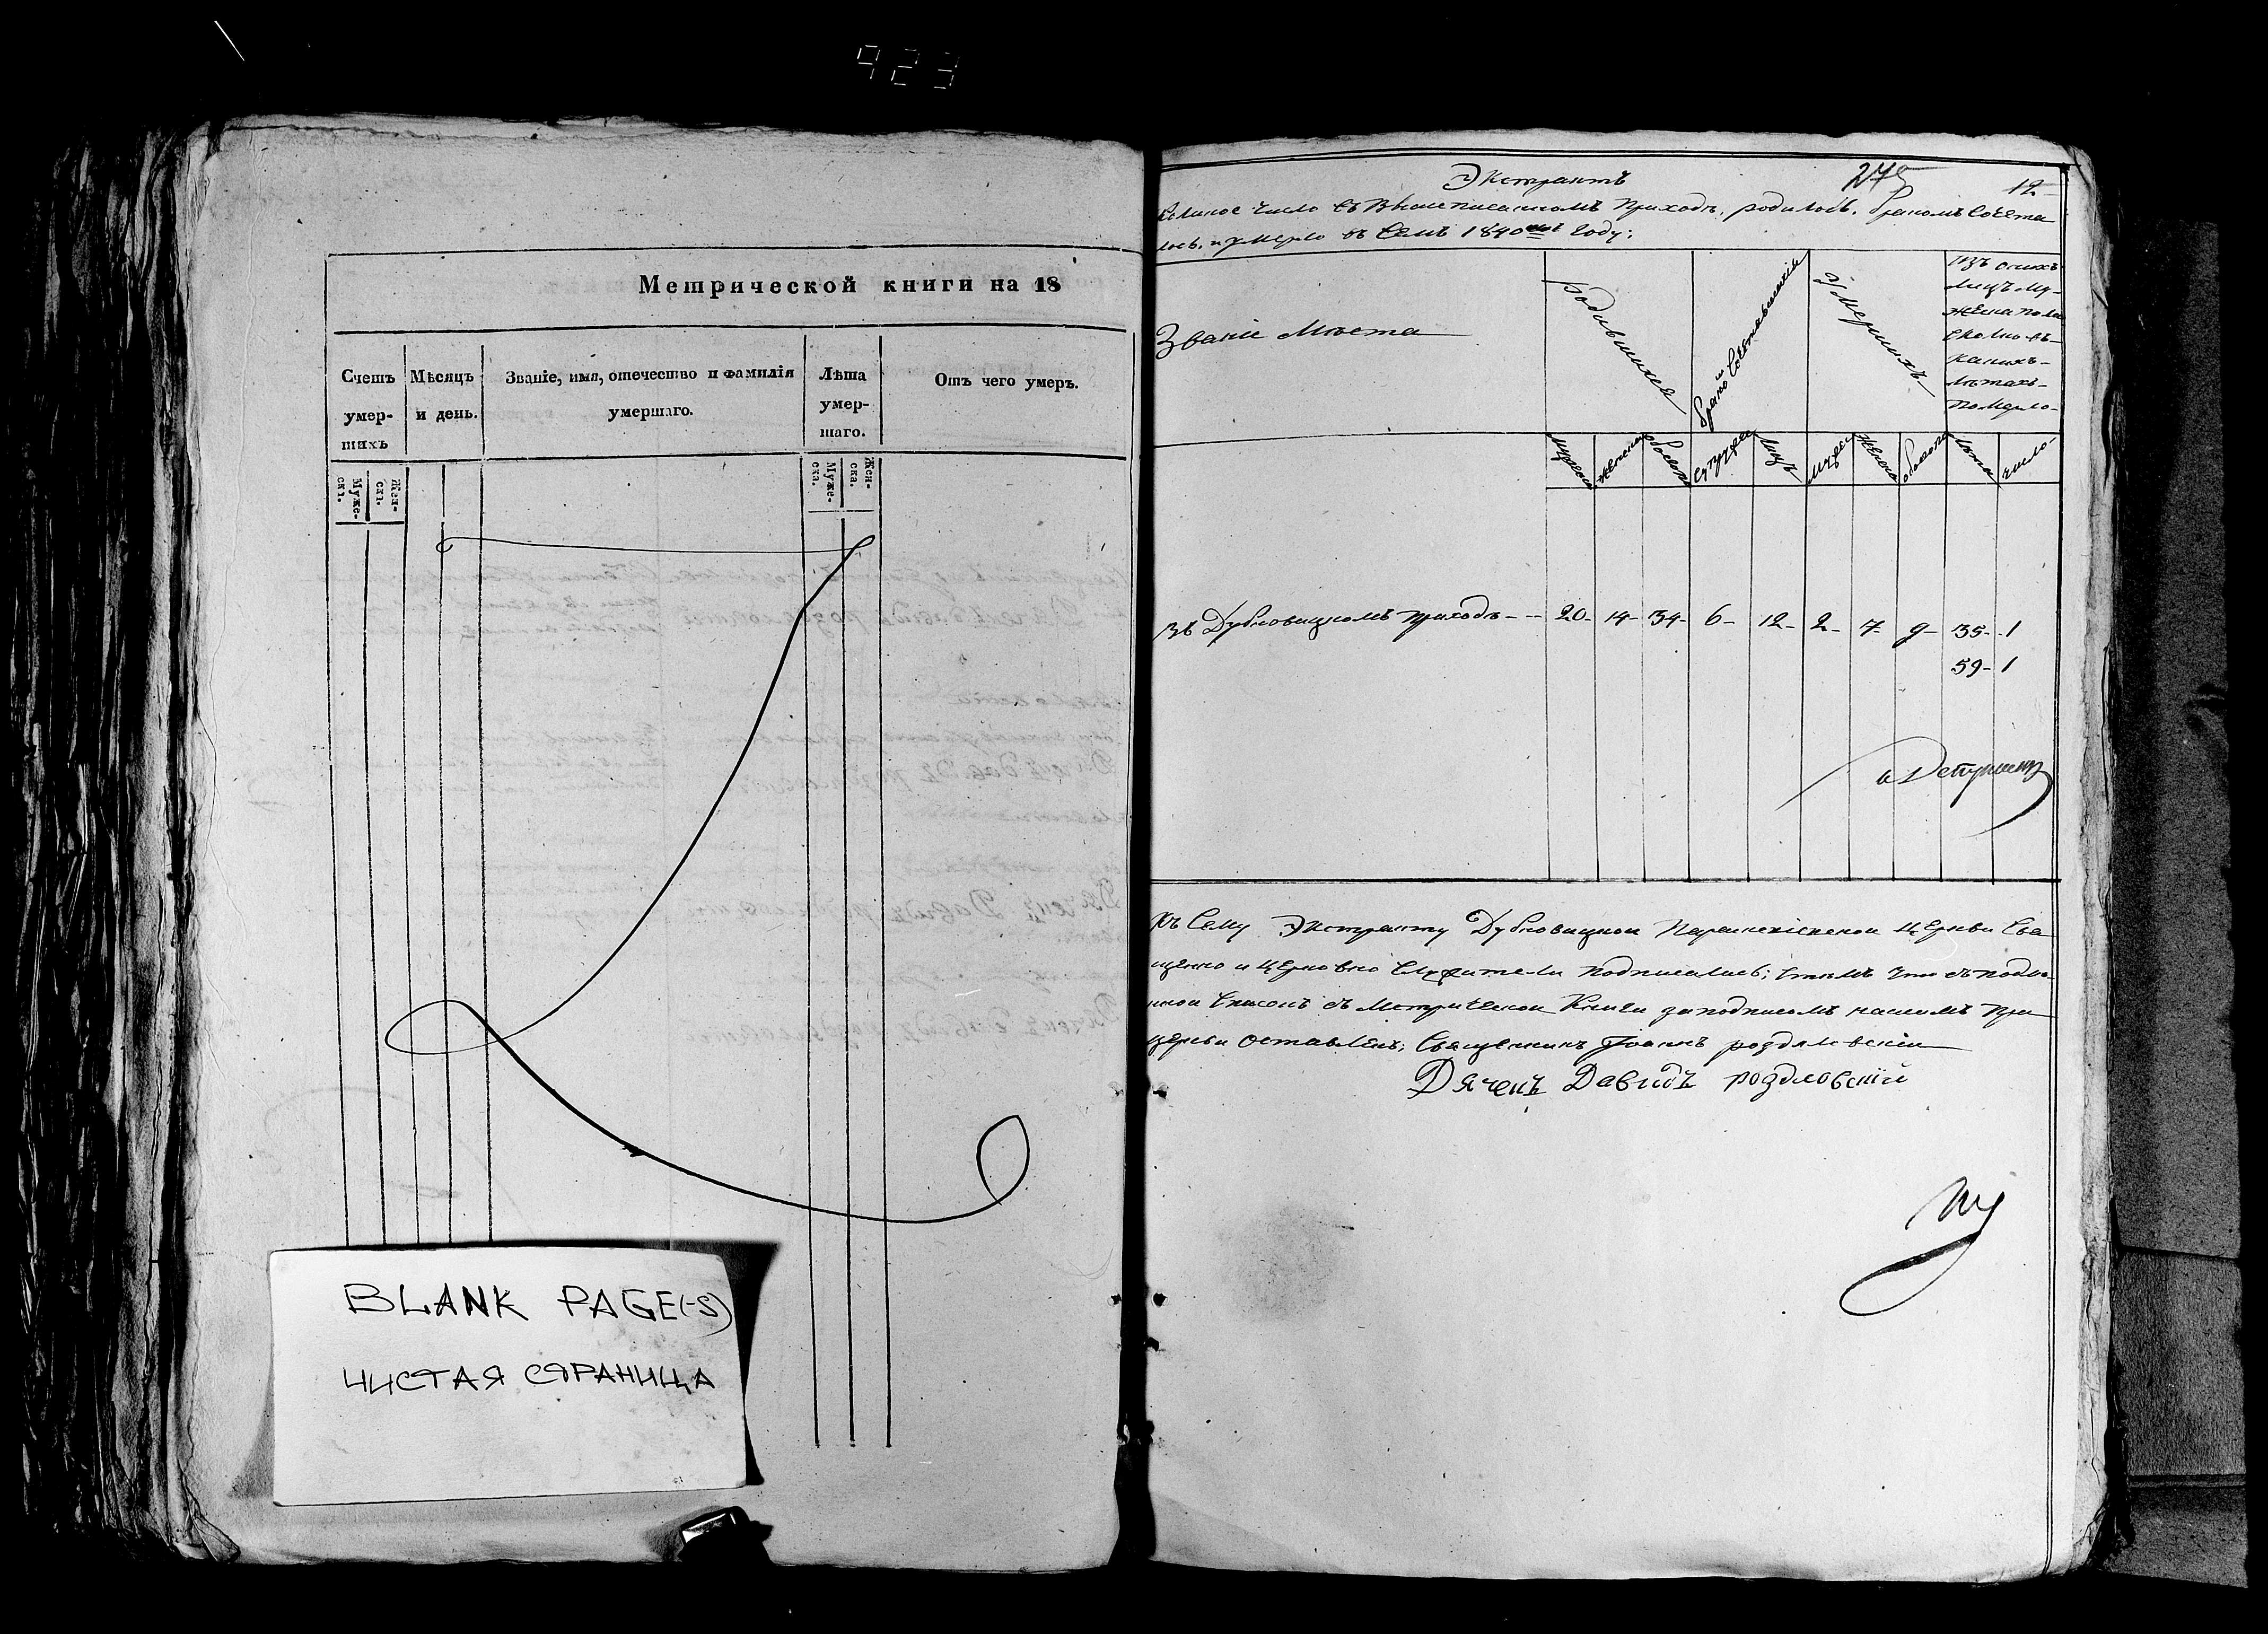 923
Метрической книги на 18
Счетъ умер- шихъ
Мѣсяцъ и день.
Званіе, имя, отечество и фамилія умершаго.
Лѣта умер- шаго.
Отъ чего умеръ.
Муже- скі.
Жен- скі.
Муже- ска.
Жен- ска.
BLANK PAGE(-S)
ЧИСТАЯ СТРАНИЦА
Экстрактъ
275
12
Коликое число въ вышеписанномъ приходѣ, родилось, бракомъ сочета
лось, и умерло въ семъ 1840мъ году;
Званіе мѣста
родившихся
бракосочетавшихся
умершихъ
изъ оныхъ
лицъ му-
жеска пола
сколко въ-
какихъ-
лѣтахъ-
померло-
число-
въ Дубковицкомъ приходѣ - - 20- 14- 34- 6- 12- 2- 7- 9- 35- 1
59- 1
Къ сему Экстракту Дубковицкой Параскевіевской церкви Свя
щенно и церковно служители подписались; стѣмъ что съ подли-
ной списокъ съ Метрической Книги заподписомъ нашимъ при
церкви оставленъ; Священникъ Іоаннъ роздяловскій
Дячекъ Давидъ роздловскій